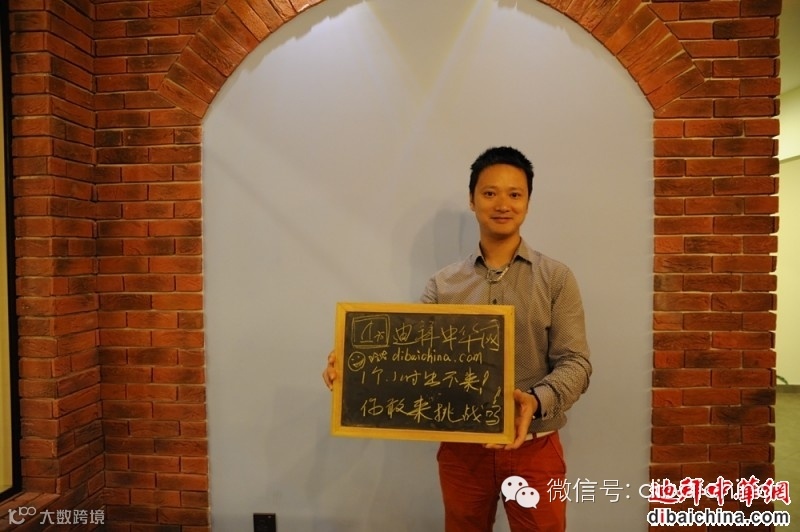 迪拜中华网
www.dibaichina.com
1个小时出不来!
你敢来挑战吗!
微信号:
迪拜中華網
dibaichina.com
大数跨境